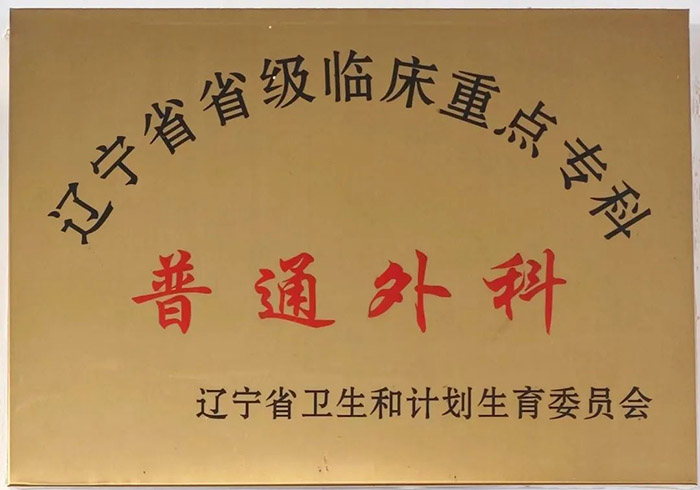 辽宁省省级临床重点专科
普通外科
辽宁省卫生和计划生育委员会